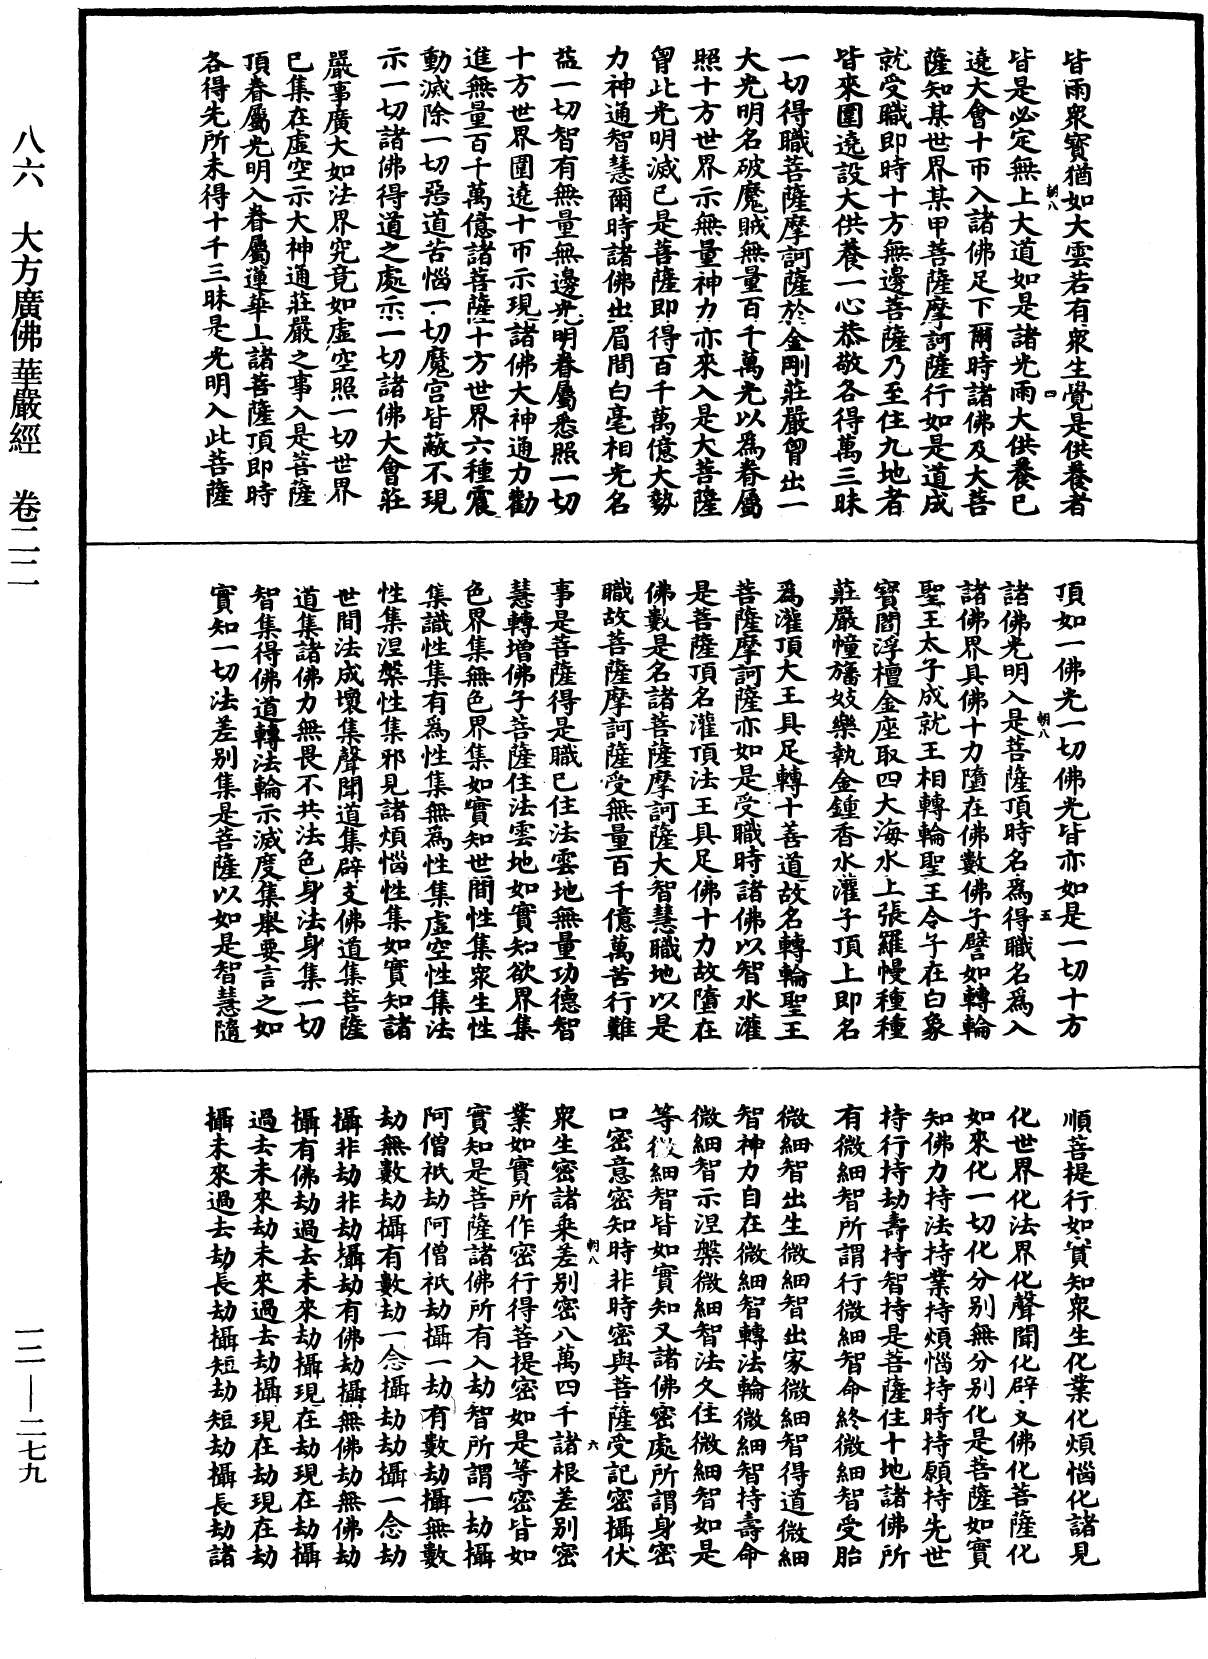 皆雨眾寶猶如大雲若有眾生覺是供養者
皆是必定無上大道如是諸光雨大供養已
遶大會十帀入諸佛足下爾時諸佛及大菩
薩知某世界某甲菩薩摩訶薩行如是道成
就受職即時十方無邊菩薩乃至住九地者
皆來圍遶設大供養一心恭敬各得萬三昧
一切得職菩薩摩訶薩於金剛莊嚴胷出一
大光明名破魔賊無量百千萬光以為眷屬
照十方世界示無量神力亦來入是大菩薩
胷此光明滅已是菩薩即得百千萬億大勢
力神通智慧爾時諸佛出眉間白毫相光名
益一切智有無量無邊光明眷屬悉照一切
十方世界圍遶十帀示現諸佛大神通力勸
進無量百千萬億諸菩薩十方世界六種震
動滅除一切惡道苦惱一切魔宮皆蔽不現
示一切諸佛得道之處示一切諸佛大會莊
嚴事廣大如法界究竟如虛空照一切世界
已集在虛空示大神通莊嚴之事入是菩薩
頂眷屬光明入眷屬蓮華上諸菩薩頂即時
各得先所未得十千三昧是光明入此菩薩
朝八
四
頂如一佛光一切佛光皆亦如是一切十方
諸佛光明入是菩薩頂時名為得職名為入
諸佛界具佛十力墮在佛數佛子譬如轉輪
聖王太子成就王相轉輪聖王令子在白象
寶閻浮檀金座取四大海水上張羅幔種種
莊嚴幢旛妓樂執金鍾香水灌子頂上即名
為灌頂大王具足轉十善道故名轉輪聖王
菩薩摩訶薩亦如是受職時諸佛以智水灌
是菩薩頂名灌頂法王具足佛十力故墮在
佛數是名諸菩薩摩訶薩大智慧職地以是
職故菩薩摩訶薩受無量百千億萬苦行難
事是菩薩得是職已住法雲地無量功德智
慧轉增佛子菩薩住法雲地如實知欲界集
色界集無色界集如實知世間性集眾生性
集識性集有為性集無為性集虛空性集法
性集涅槃性集邪見諸煩惱性集如實知諸
世間法成壞集聲聞道集辟支佛道集菩薩
道集諸佛力無畏不共法色身法身集一切
智集得佛道轉法輪示滅度集舉要言之如
實知一切法差別集是菩薩以如是智慧隨
朝八
五
順菩提行如實知眾生化業化煩惱化諸見
化世界化法界化聲聞化辟支佛化菩薩化
如來化一切化分別無分別化是菩薩如實
知佛力持法持業持煩惱持時持願持先世
持行持劫壽持智持是菩薩住十地諸佛所
有微細智所謂行微細智命終微細智受胎
微細智出生微細智出家微細智得道微細
智神力自在微細智轉法輪微細智持壽命
微細智示涅槃微細智法久住微細智如是
等微細智皆如實知又諸佛密處所謂身密
口密意密知時非時密與菩薩受記密攝伏
眾生密諸乘差別密八萬四千諸根差別密
業如實所作密行得菩提密如是等密皆如
實知是菩薩諸佛所有入劫智所謂一劫攝
阿僧祇劫阿僧祇劫攝一劫有數劫攝無數
劫無數劫攝有數劫一念攝劫劫攝一念劫
攝非劫非劫攝劫有佛劫攝無佛劫無佛劫
攝有佛劫過去未來劫攝現在劫現在劫攝
過去未來劫未來過去劫攝現在劫現在劫
攝未來過去劫長劫攝短劫短劫攝長劫諸
朝八
六
八六 大方廣佛華嚴經 卷二二
一三—二七九